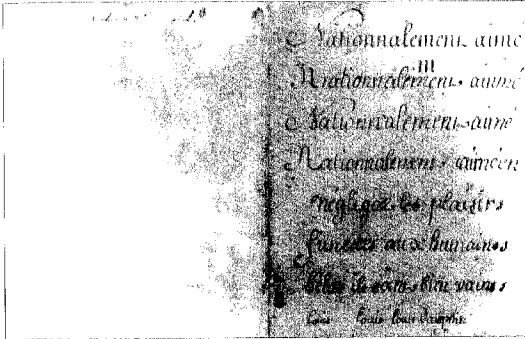 Nationnalement aimé
Nationnalement aimé
m
Nationnalement aimé
Nationnalement aimé
negligez les plaisirs
funestes aux humains
ils sont bien vains
Louis Louis Louis Dauphin